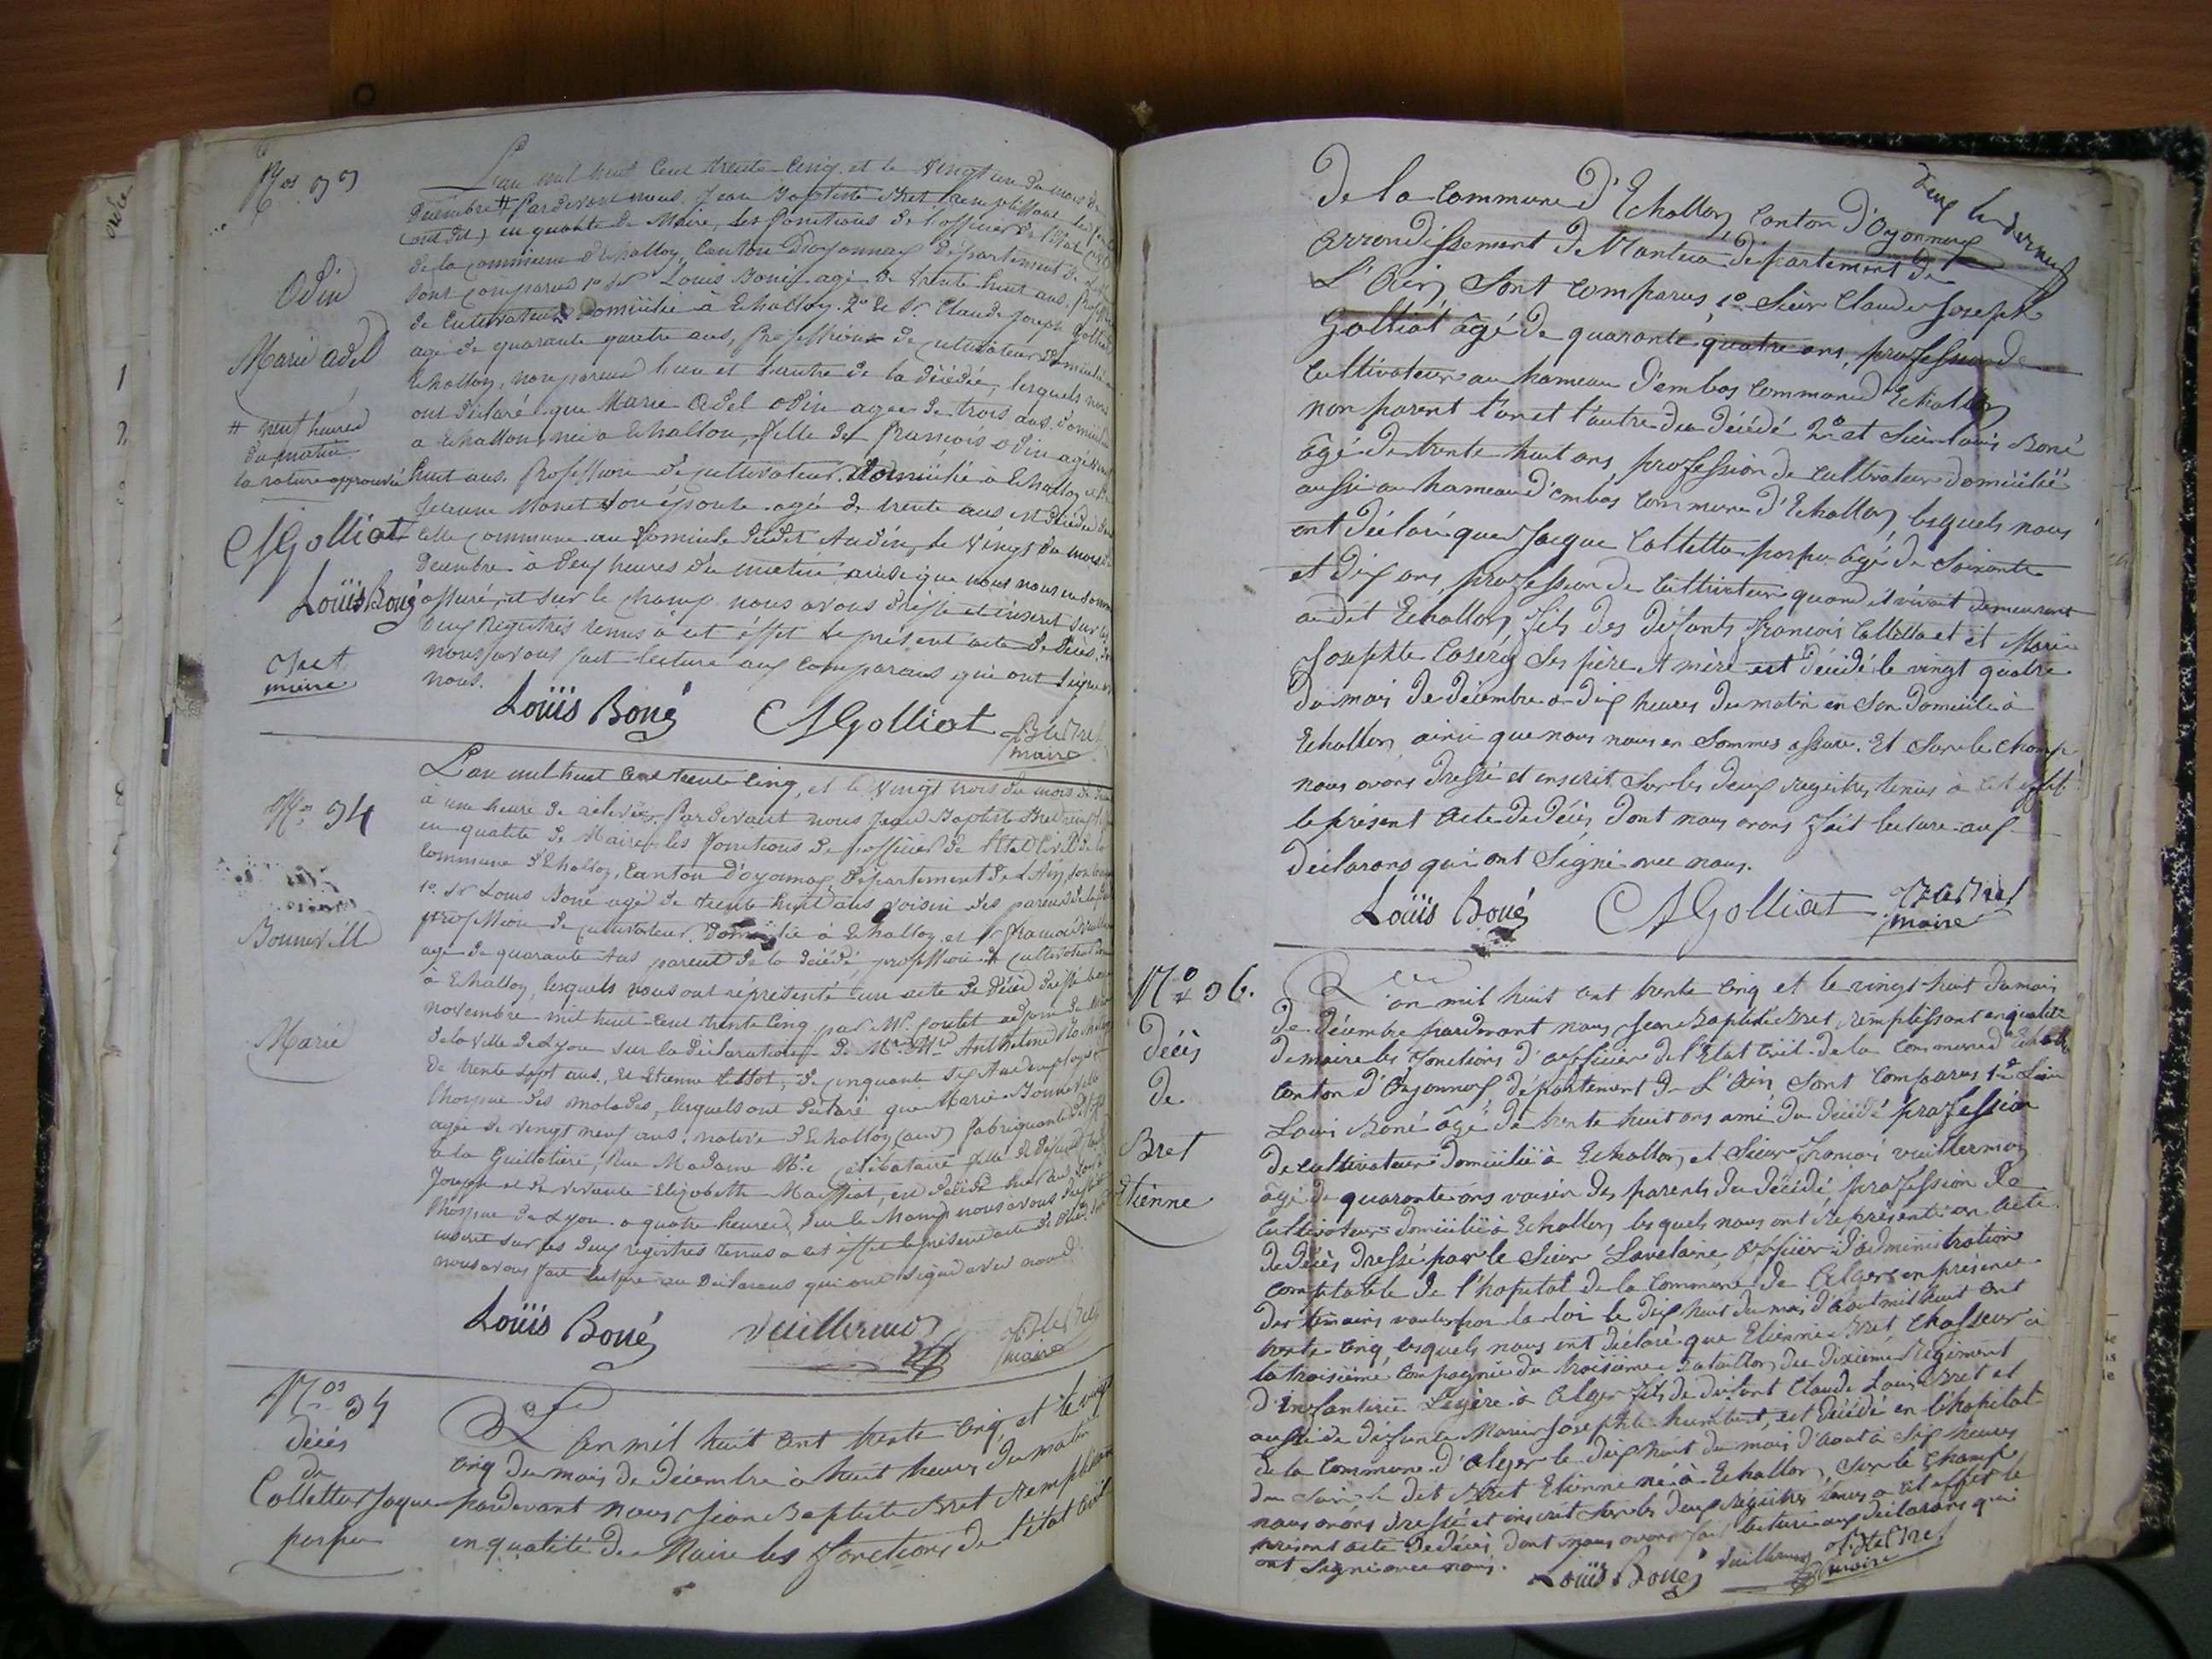 Nos 33
Odin
Marie adel
# neuf heures
du matin
la rature approuvée
CJGolliat
Louis Boné
Bret
maire
L'an mil huit cent trente cinq et le vingt un du mois de
Décembre # Pardevant nous Jean Baptiste Bret Remplissant les
en qualité de Maire, les fonctions de l'officier de l'Etat civil
de la commune d'Echallon, Canton D'oyonnax Département de
sont comparus 1o Sr Louis Boné agé de trente huit ans,
de cultivateur domicilié à Echallon. 2o le Sr Claude Joseph Golliat
agé de quarante quatre ans, Profession de cultivateur Domicilié
Echallon, non parend l'un et l'autre de la décédée, lesquels nous
ont déclaré que Marie Adel Odin agee de trois ans. domiciliée
a Echallon, née a Echallon, fille de françois odin agé
huit ans. Profession de cultivateur. Domicilié à Echallon et
Monet son épouse agée de trente ans est décédée
cette commune au Domicile dudit Audin, le vingt du mois
Décembre à deux heures du matin ainsi que nous nous en sommes
assuré, et sur le champ nous avons dressé et inscrit sur les
deux Registres tenus à cet effet le présent acte de Décès,
nous avons fait lecture aux comparans qui ont signé
nous.
Louïs Boné CJGolliat JB Bret
maire
No 34
Bonneville
Marie
L'an mil huit cent trente cinq, et le vingt trois du mois de
à une heure de relevée. Pardevant nous Jean Baptiste Bret
en qualité de Maire les fonctions de l'officier de l'Etat Civil de la
Commune d'Echallon, Canton D'oyonnax Département de L'Ain
1o Sr Louis Boné agé de trente huit ans voisin des parens de la
profession de cultivateur. Domicilié à Echallon et Sr françois
agé de quarante Ans parent de la décédé, profession de cultivateur
à Echallon, lesquels nous ont réprésenté un acte de Décès dressé
novembre mil huit cent trente cinq par Mr. Coulet adjoint
de la ville de Lyon sur la déclaration de Anthelme
de trente sept ans, Et Etienne de cinquante six Ans employés
l'hospice des malades, lesquels ont déclaré que Marie Bonneville
agée de vingt neuf ans, native d'Echallon (ain) fabriquante
à la Guillotière, Rue Madame célibataire fille de défunt
Joseph et de vivante Elizabeth Maissiat, est décédé hier
l'hospice de Lyon a quatre heures, sur le champ nous avons
inscrit sur les deux registres tenus a cet effet le présent acte de Décès
nous avons fait lecture au Déclarans qui ont signé avec nous.
Louïs Boné Vuillermoz JB Bret
maire
Nos 35
Décès
de
Collettaz Jaque
L'an mil huit cent trente cinq, et le vingt
cinq du mois de décembre à huit heures du matin
pardevant nous Jean Baptiste Bret Remplissant
en qualité de Maire les fonctions de l'état civil
De la commune d'Echallon, Canton d'Oyonnax
arrondissement de Nantua département de
L'Ain, sont comparus, 1o Sieur Claude Joseph
Golliat âgé de quarante quatre ans, profession de
Cultivateur au hameau d'embas commune d'Echallon
non parent l'un et l'autre du décédé 2o et Sieur Louis Boné
âgé de trente huit ans, profession de cultivateur domicilié
aussi au hameau d'embas commune d'Echallon, lesquels nous
ont déclaré que Jacque Colletta âgé de soixante
et dix ans, profession de Cultivateur quand il vivait demeurant
audit Echallon, fils des défunts françois Colletta et et Marie
Josephte ses père et mère est décédé le vingt quatre
du mois de décembre a dix heures du matin en son domicile à
Echallon ainsi que nous nous en sommes assuré. Et sur le champ
nous avons dressé et inscrit sur les deux registres tenus à cet effet
le présent acte de décès, dont nous avons fait lecture aux
déclarans qui ont signé avec nous.
Louïs Boné CJGolliat JB Bret
maire
No 36.
Décès
de
Bret
Etienne
L'an mil huit cent trente cinq et le vingt huit du mois
de décembre pardevant nous Jean Baptiste Bret remplissant en qualité
de maire les fonctions d'officier de l'Etat Civil de la commune d'Echallon
canton d'Oyonnax département de L'Ain sont comparus 1o Sieur
Louis Boné âgé de trente huit ans ami du décédé profession
de cultivateur domicilié à Echallon, et Sieur françois vuillermoz
âgé de quarante ans voisin des parents du décédé, profession de
Cultivateur domicilié à Echallon, lesquels nous ont représenté un acte
de décès dressé par le Sieur Lavelaine, officier d'administration
comptable de l'hopital de la commune de Alger en présence
des témoins voulus par la loi le dix huit du mois d'Aout mil huit cent
trente cinq, lesquels nous ont déclaré que Etienne Bret, Chasseur à
la troisième Compagnie du troisième Bataillon du dixième Régiment
d'infanterie Légère à Alger, fils de défunt Claude Louis Bret et
aussi de défunte Marie Josephte humbert, est décédé en l'hopital
de la commune d'Alger le dix huit du mois d'aout à six heures
du soir, le dit Bret Etienne né à Echallon, sur le champ
nous avons dressé et inscrit sur les deux Régistres tenus a cet effet le
présent acte de décès, dont nous avons fait lecture aux déclarans qui
ont signé avec nous. Louïs Boné Vuillermoz JB Bret
maire